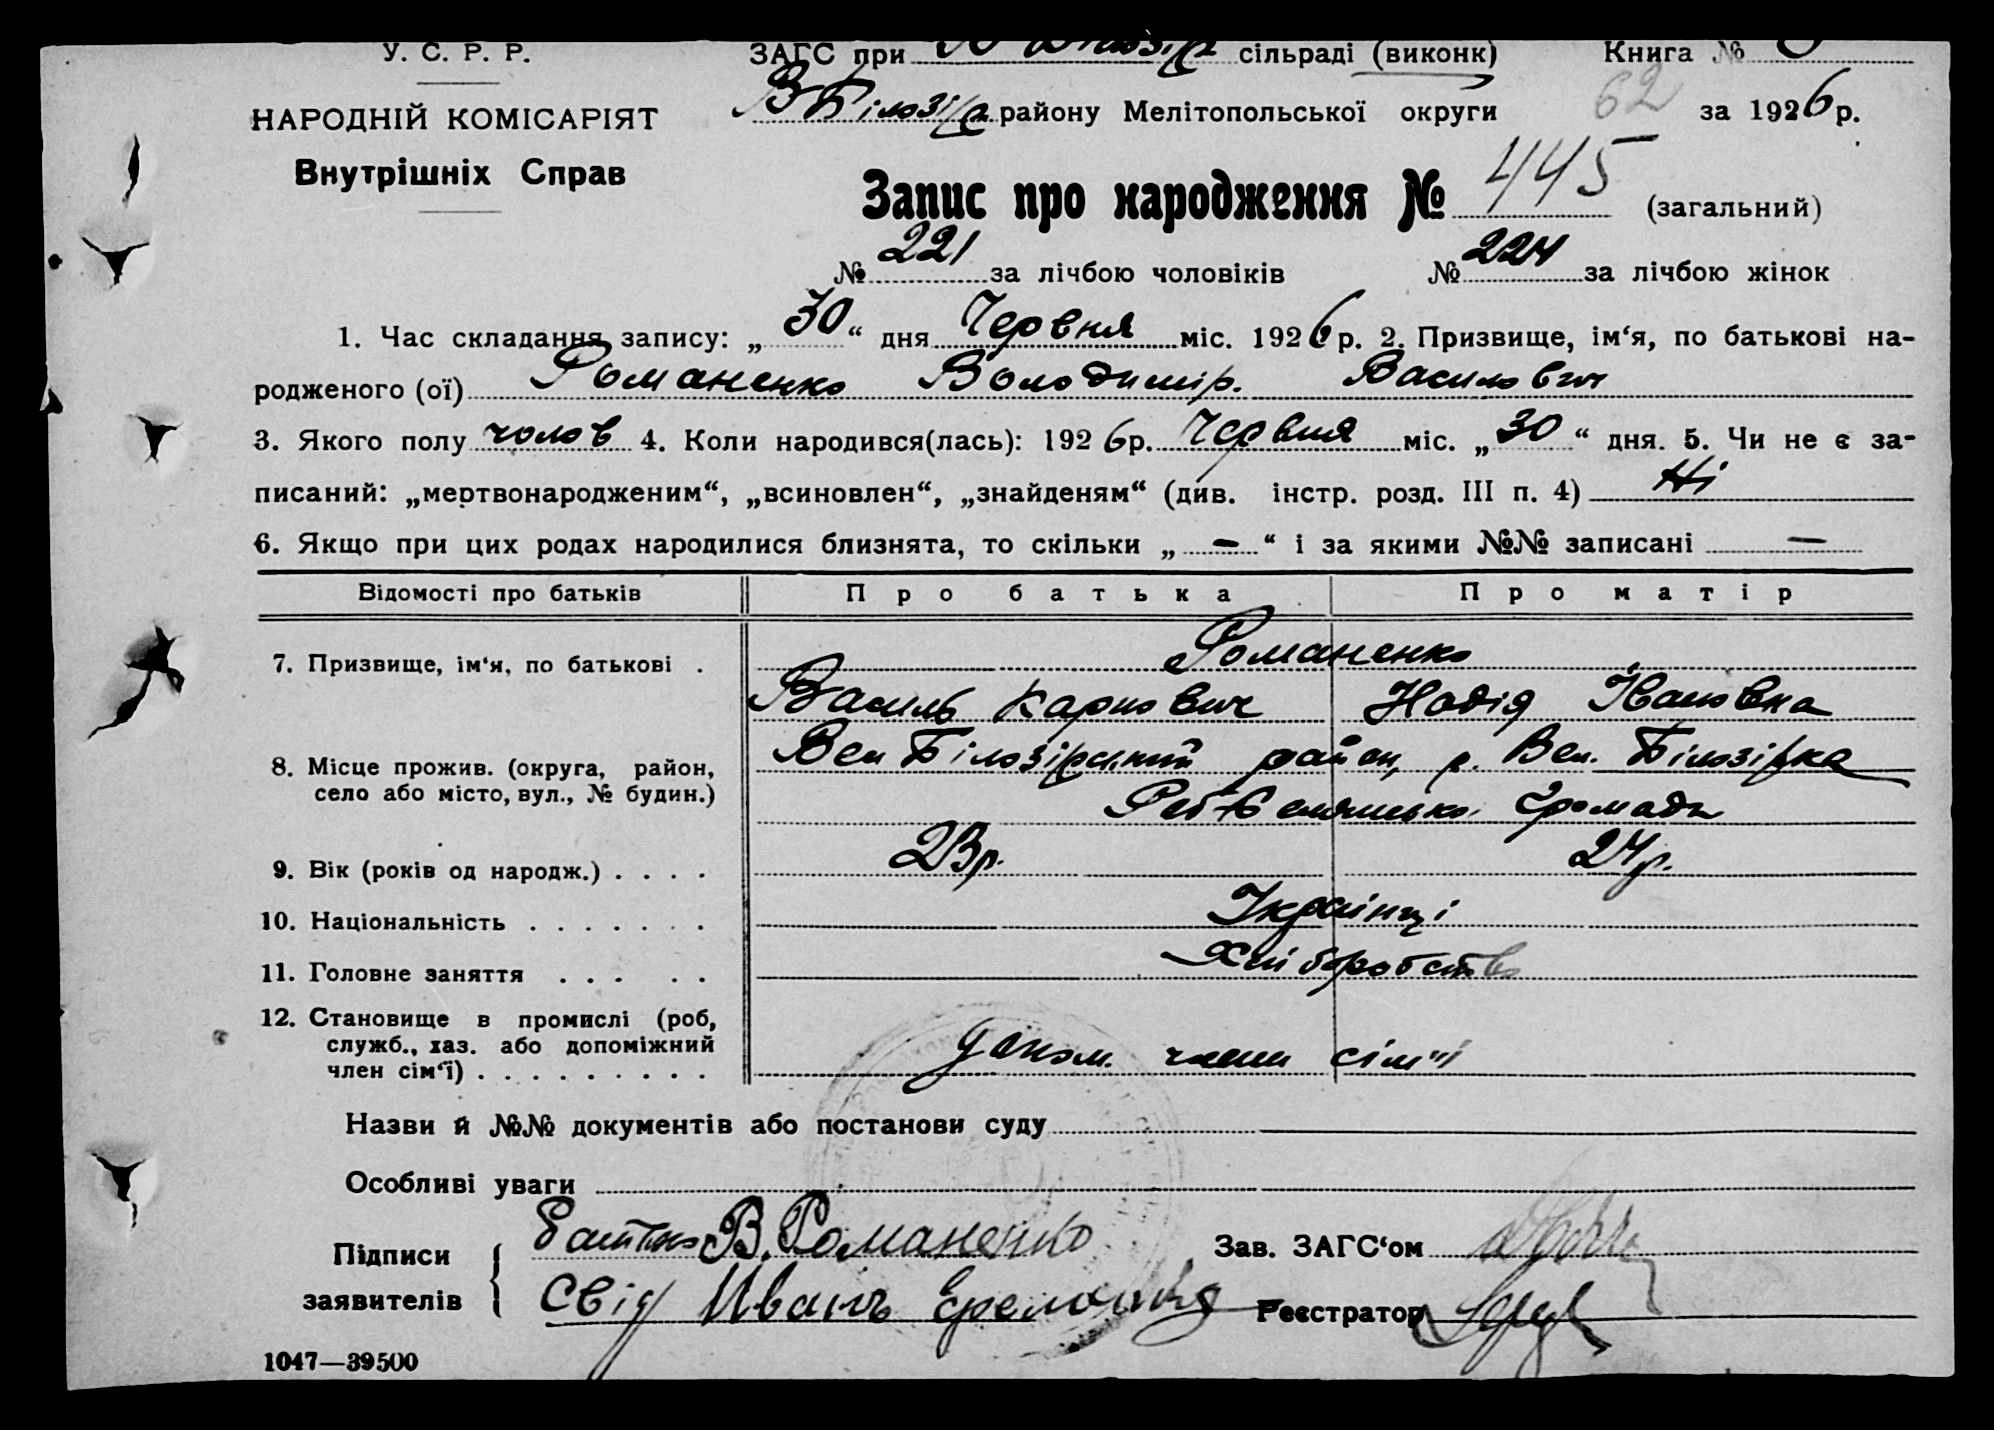 У. С. Р. Р. ЗАГС при сільраді (виконк) Книга №
НАРОДНІЙ КОМІСАРІЯТ В Білозірс. району Мелітопольської округи 62 за 1926 р.
Внутрішніх Справ
Запис про народження № 445 (загальний)
№ 221 за лічбою чоловіків № 224 за лічбою жінок
1. Час складання запису: „30“ дня Червня міс. 1926 р. 2. Призвище, ім‘я, по батькові на-
родженого (ої) Романенко Володимір. Васильович
3. Якого полу чолов 4. Коли народився(лась): 1926 р. Червня міс. „30“ дня. 5. Чи не є за-
писаний: „мертвонародженим“, „всиновлен“, „знайденям“ (див. інстр. розд. III п. 4) Ні
6. Якщо при цих родах народилися близнята, то скільки „ — “ і за якими №№ записані —
Відомості про батьків Про батька Про матір
7. Призвище, ім‘я, по батькові . Романенко
Василь Карпович Надія Івановна
8. Місце прожив. (округа, район, Вел Білозірський район, с. Вел. Білозірка
село або місто, вул., № будин.) громади
9. Вік (років од народж.) . . . . 23 р. 24 р.
10. Національність . . . . . . . Українці
11. Головне заняття . . . . . Хліборобство
12. Становище в промислі (роб,
служб., хаз. або допоміжний допом. члени сім'ї
член сім‘ї) . . . . . . . . .
Назви й №№ документів або постанови суду
Особливі уваги
Підписи Батько В. Романенко Зав. ЗАГС‘ом
заявителів Свід Иванъ Реєстратор
1047—39500